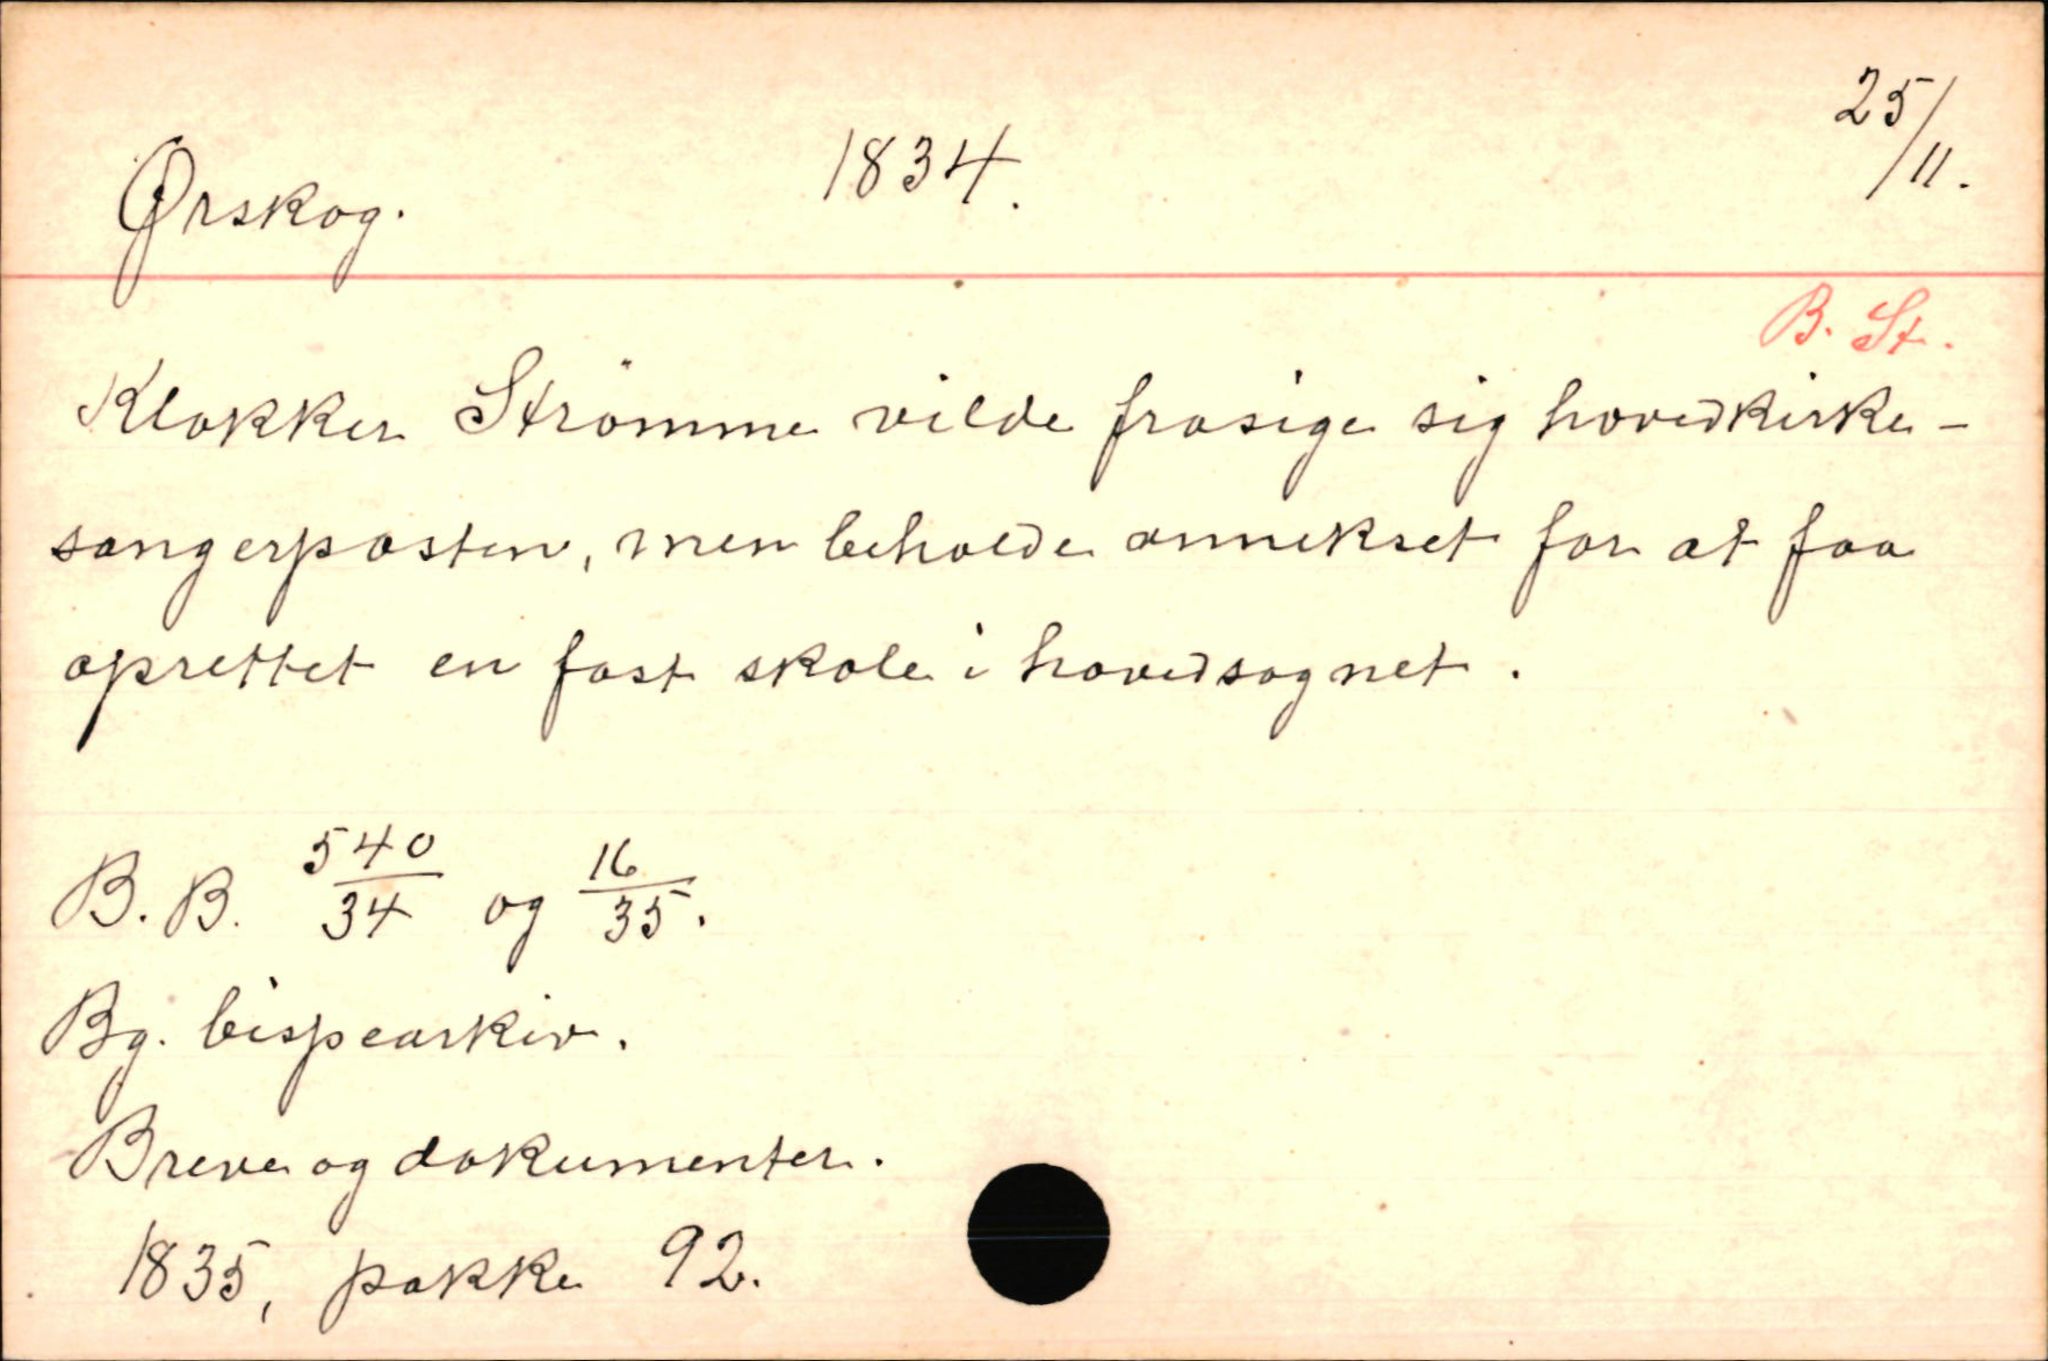 Ørskog. 1834. 25/11.
B. St.
Klokker Strömme vilde frasige sig hovedkirke-
sangerposten, men beholde annekset for at faa
oprettet en fast skole i hovedsognet.
B. B. 540/34 og 16/35.
Bg. bispearkiv.
Breve og dokumenter.
1835, pakke 92.